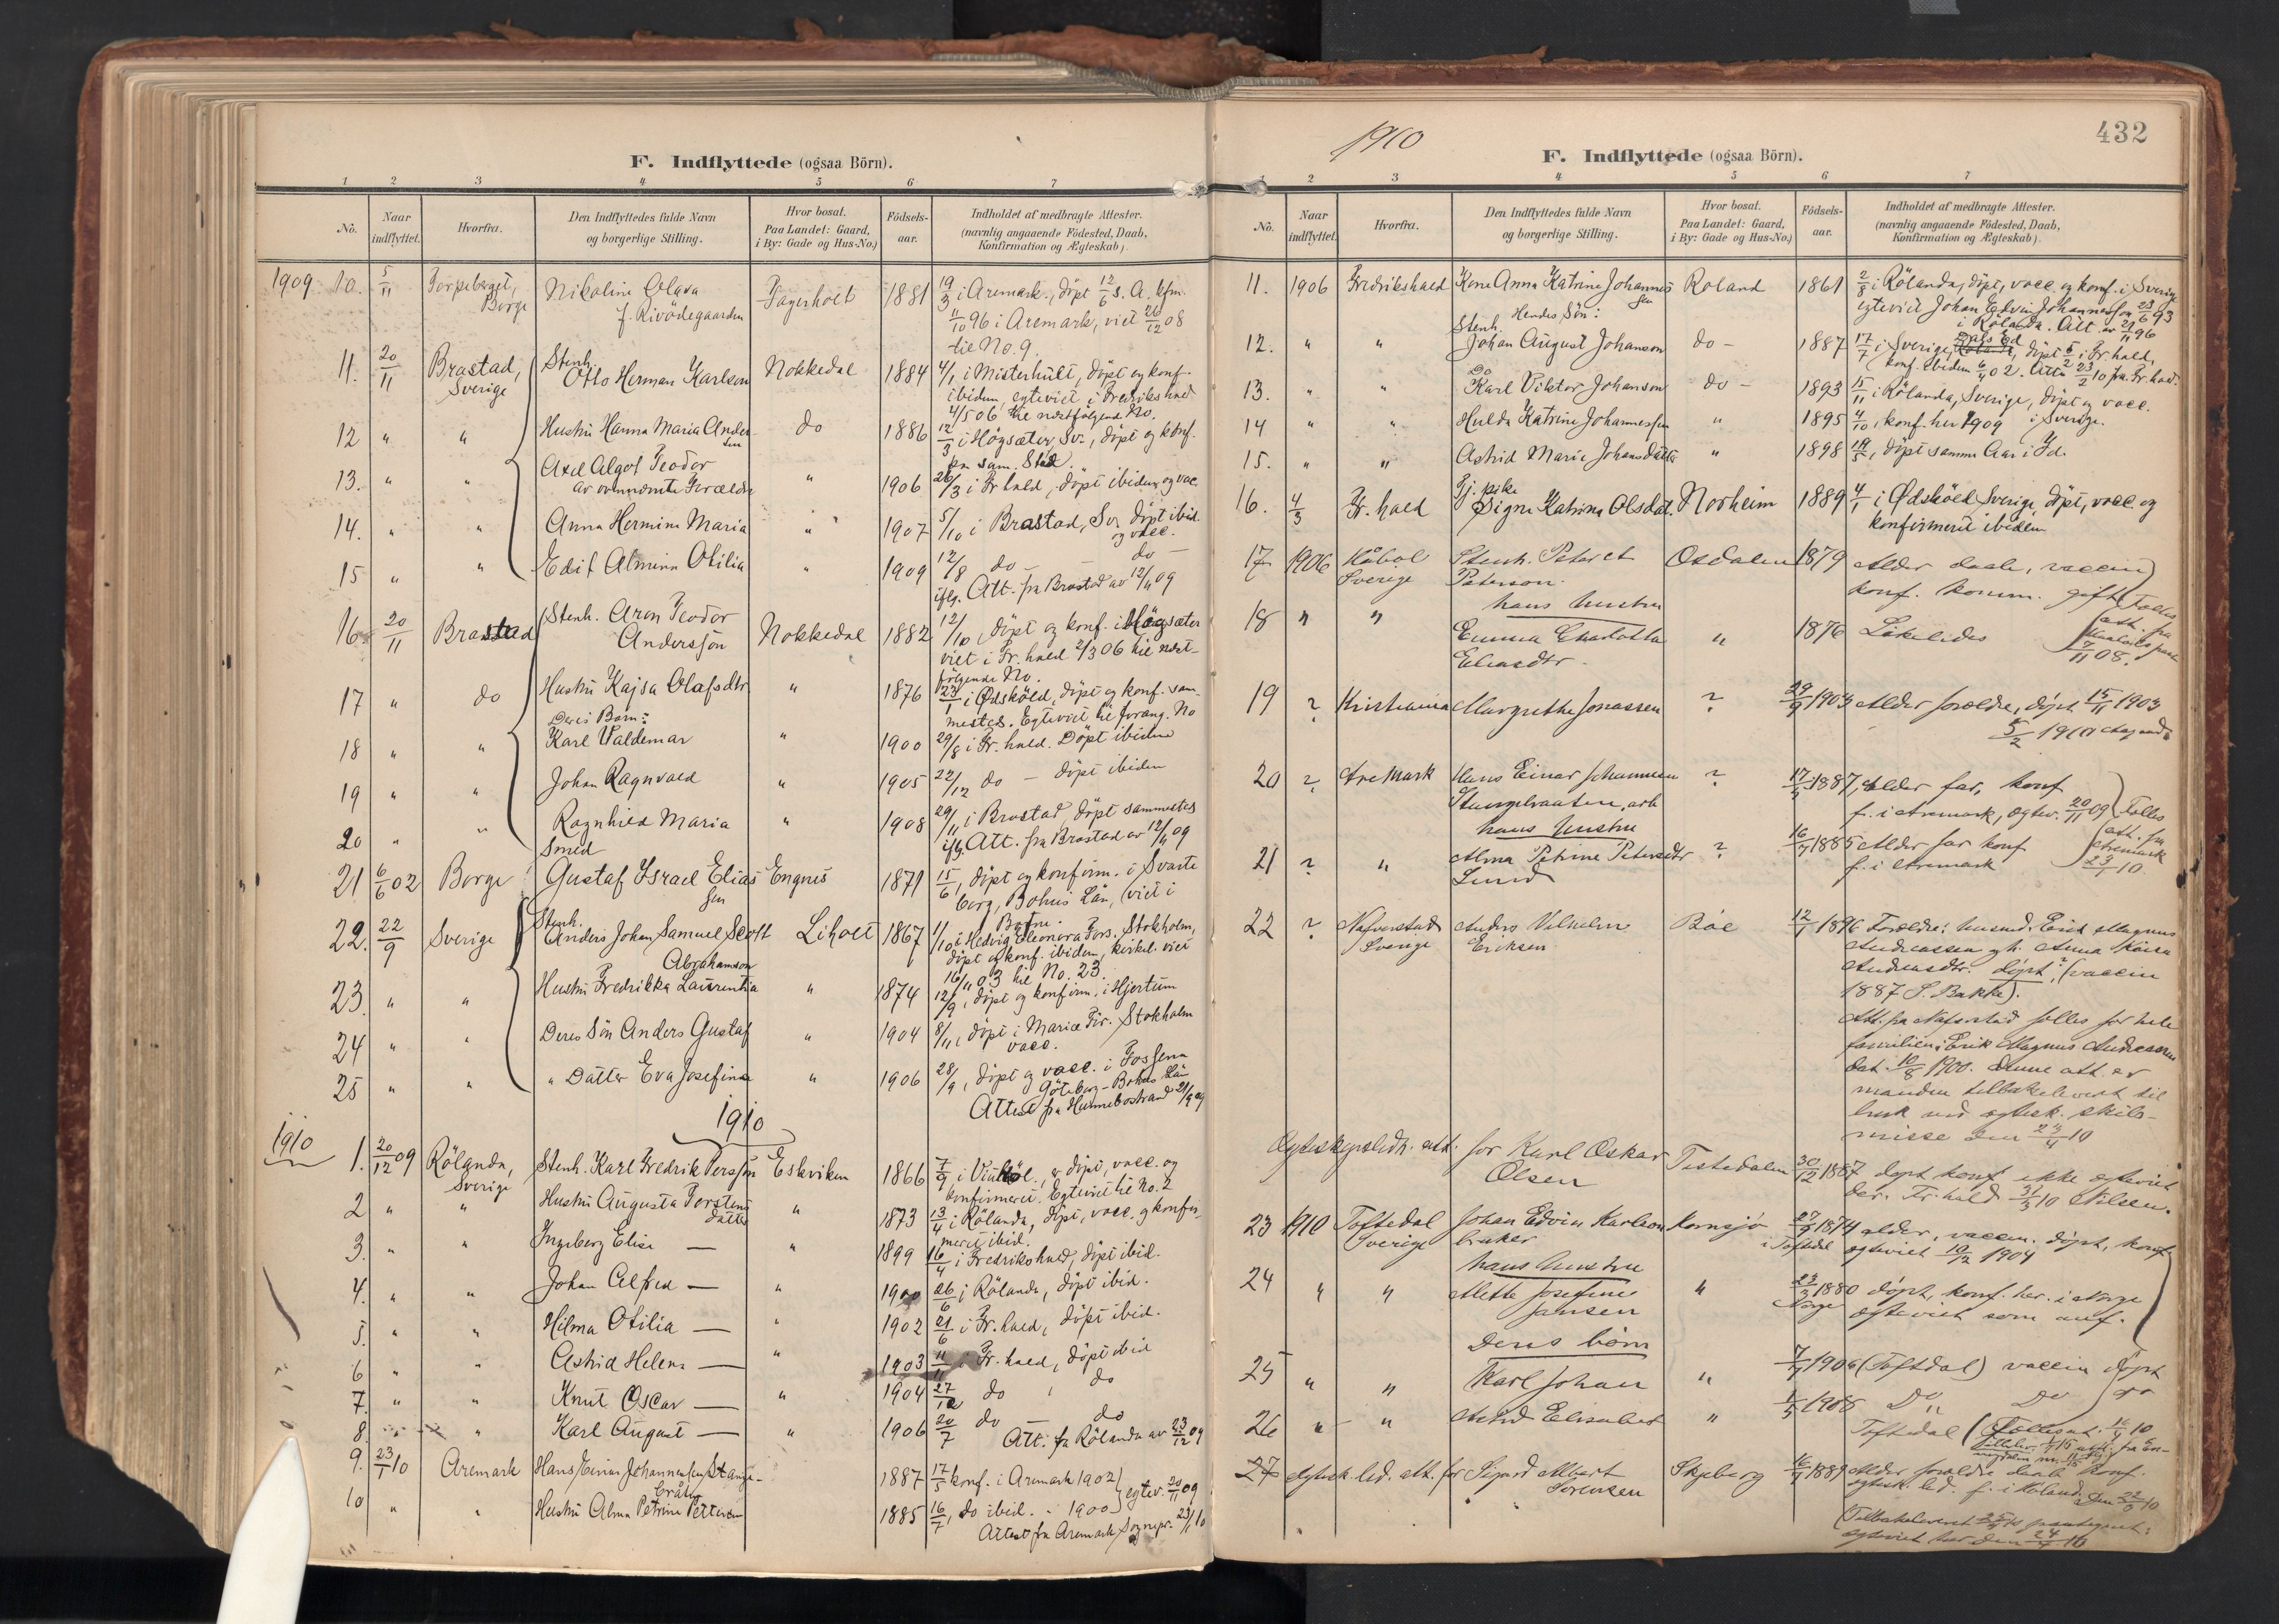 F. Indflyttede (ogsaa Börn).
1 2 3 4 5 6 7
No. Naar indflyttet. Hvorfra. Den Indflyttedes fulde Navn og borgerlige Stilling. Hvor bosat. Paa Landet: Gaard, i By: Gade og Hus-No.) Födsels-aar. Indholdet af medbragte Attester. (navnlig angaaende Födested, Daab, Konfirmation og Ægteskab).
1909 10. 5/11 Torpeberget, Borge Nikoline Olava Fagerholt 1881 19/3 i Aremark, döpt 12/6 s. A., kfm.
f. Rivödegaarden 11/10 96 i Aremark, viet 26/12 08
til No. 9.
11. 20/11 Brastad, Sverige Stenh. Otto Herman Karlson Nokkedal 1884 4/1 i Misterhult, döpt og konf.
ibidem, egteviet i Fredrikshald
4/5 06 til nærtfölgende No.
12 " " Hustru Hanna Maria Andersen do 1886 12/3 i Högsæter, Sv., döpt og konf.
paa sam. Sted.
13. " " Axel Algot Teodor " 1906 26/3 i Fr.hald, döpt ibidem og vac.
av ovennævnte Forældre
14. " " Anna Hermine Maria " 1907 5/10 i Brastad, Sv. döpt ibid.
og vacc.
15 " " Edit Alminn Otilia " 1909 12/8 do - do -
iflg. Att. fra Brastad av 12/11 09
16 20/11 Brastad Stenh. Aron Teodor Andersson Nokkedal 1882 12/10, döpt og konf. i Högsæter
viet i Fr.hald 2/3 06 til næst-
fölgende No.
17 " do Hustru Kajsa Olafsdtr " 1876 23/1 i Ödsköld, döpt og konf. sam-
mested. Egteviet til forang. No
Deres Barn:
18 " " Karl Valdemar " 1900 29/8 i Fr.hald. Döpt ibidem
19 " " Johan Ragnvald " 1905 22/12 do - döpt ibidem
20 " " Ragnhild Maria " 1908 29/11 i Brastad, döpt sammested
iflg. Att. fra Brastad av 12/11 09
Smed
21 6/6 02 Borge Gustaf Israel Eliassen Engnes 1871 15/6, döpt og konfirm. i Svarte
borg, Bohus Län, (viet i
22. 22/9 Sverige Stenh. Anders Johan Samuel Scott Abrahamson Liholt 1867 1/10 i Hedvig Eleonora Fors. Stokholm,
döpt og konf. ibidem, kirkel. viet
16/11 03 til No. 23.
23 " " Hustru Fredrikka Laurentia " 1874 12/9, döpt og konfirm. i Hjertum
24 " " Deres Sön Anders Gustaf " 1904 8/11, döpt i Maria För. Stokholm
vacc.
25 " " " Datter Eva Josefina " 1906 28/9, döpt og vacc. i Fossena
Göteborg-Bohus Län
Attest fra Hunnebostrand 21/9 09
1910
1910 1. 20/12 09 Rölanda, Sverige Stenh. Karl Fredrik Persson Eskviken 1866 7/9 i döpt, vacc. og
konfirmeret. Egteviet til No. 2
2 " " Hustru Augusta Torstensdatter " 1873 13/4 i Rölanda, döpt, vacc. og konfir-
meret ibid.
3. " " Ingeborg Elise — " 1899 16/4 i Fredrikshald, döpt ibid.
4. " " Johan Alfred — " 1900 26/6 i Rölanda, döpt ibid.
5. " " Hilma Otilia — " 1902 21/6 i Fr.hald, döpt ibid.
6 " " Astrid Helena — " 1903 11/11 i Fr.hald, döpt ibid
7. " " Knut Oscar — " 1904 27/12 do do
8. " " Karl August — " 1906 20/7 do — do
Att. fra Rölanda av 23/12 09
9. 23/1 10 Aremark Hans Einar Johannessen Stange- 1887 17/5 konf. i Aremark 1902) egtev. 20/11 09
10 " " Hustru Alma Petrine Pettersen 1885 16/7, do ibid. - 1900
Attest fra Aremark Sognepr. 23/1 10
1910
432
F. Indflyttede (ogsaa Börn).
1 2 3 4 5 6 7
No. Naar indflyttet. Hvorfra. Den Indflyttedes fulde Navn og borgerlige Stilling. Hvor bosat. Paa Landet: Gaard, i By: Gade og Hus-No.) Födsels-aar. Indholdet af medbragte Attester. (navnlig angaaende Födested, Daab, Konfirmation og Ægteskab).
11. 1906 Fredrikshald Kone Anna Katrine Johannessen Roland 1861 2/8 i Rölanda, döpt, vacc. og konf. i Sverige
egteviet Johan Edvin Johannesson 23/6 93
i Rölanda. Att. av 21/11 96
Hendes Sön:
12. " " Stenh. Johan August Johanson do - 1887 17/7 i Sverige, Dals Ed, döpt 6/2 i Fr.hald,
konf. ibidem 6/4 02. Att. 23/2 10 fra Fr.hald.
13. " " Do Karl Viktor Johanson do - 1893 15/11 i Rölanda, Sverige, döpt og vacc.
14 " " Hulda Katrine Johannessen " 1895 4/10, konf. her 1909 i Sverige.
15. " " Astrid Marie Johansdatter " 1898 19/5, döpt samme Aar i Id.
16. 4/3 Fr.hald Tj.pike Signe Katrine Olsdat. Norheim 1889 4/1 i Ödsköld Sverige, döpt, vacc. og
konfirmeret ibidem
17 1906 Håbol Sverige Stenh. Peter et Peterson. Osdalen 1879 Alder daab, vaccin
konf. komm. gift
hans hustru
18 " " Emma Charlotta Eliasdtr. " 1876 Likeledes
Fælles att. fra 7/11 08.
19 ? Kristiania Margrethe Jonassen ? 29/9 1903 Alder forældre, döpt 15/11 1903
5/2 1910
20 ? Aremark Hans Einar Johannessen ? 17/5 1887, Alder far, konf
Stangebraaten, arb f. i Aremark, egtev. 20/11 09
hans hustru
21 ? " Alma Petrine Petersdtr Lund ? 16/7 1885 Alder far konf.
f. i Aremark
Fælles att. fra Aremark 23/1 10
22 ? Nafverstad Sverige Anders Vilhelm Eriksen Böe 12/1 1896 Forældre: husmd. Erik Magnus
Andreassen og h. Anna Kaisa
Andreasdtr. döpt?, (vaccin
1887 S. Bakke).
Att. fra Nafverstad fælles for hele
familien: Erik Magnus Andreassen
dat. 10/8 1900. Denne att. er
manden tilbakelevert til
bruk ved egtesk. skils-
misse den 23/4 10
Egteskapsledn. att. for Karl Oskar Olsen Tistedalen 30/12 1887 döpt konf ikke egteviet
her. Fr.hald 31/3 10 Nilsen.
23 1910 Töftedal Sverige Johan Edvin Karlson bruker Kornsjö 27/9 1874 i Töftedal alder, vaccin. döpt, konf
egteviet 10/12 1904
hans hustru
24 " " Mette Josefine Jansen " 23/3 1880 Norge döpt, konf. her. i Norge
egteviet som anf.
Deres börn
25 " " Karl Johan " 7/9 1906 (Töftdal) vaccin döpt
26 " " Astrid Elisabet " 1/5 1908 Do Do do
Töftedal (Fælles att. 16/4 10
27 Egtesk. led. att. for Sigurd Albert Sorensen Skjeberg 16/9 1889 Alder forældre daab konf.
egtesk. led. f. i Roland. Den 22/3 10
(Tilbakeleveret
egteviet her den 24/4 10